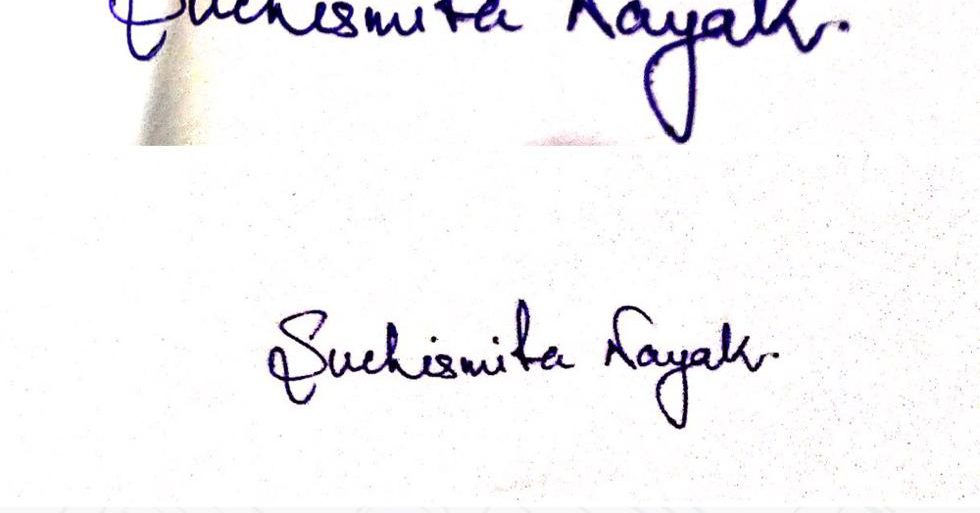 Suchismita Nayak.
Suchismita Nayak.